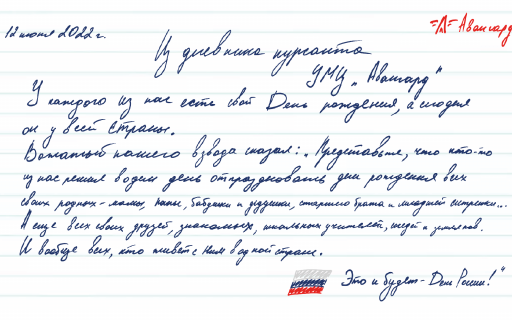 12 июня 2022 г.
=А= Авангард
Из дневника курсанта
УМЦ „Авангард"
У каждого из нас есть свой День рождения, а сегодня
он у всей страны.
Вожатый нашего взвода сказал: „Представьте, что кто-то
из нас решил в один день отпраздновать дни рождения всех
своих родных - мамы, папы, бабушки и дедушки, старшего брата и младшей сестренки...
А еще всех своих друзей, знакомых, школьных учителей, и земляков.
И вообще всех, кто живет с ним в одной стране.
Это и будет - День России!"